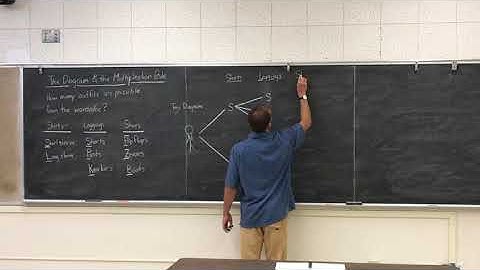 Tree Diagram & the Multiplication Rule
How many outfits are possible
from the wardrobe?
Shirts Leggings Shoes
Short sleeve Shorts Flip flops
Long sleeve Pants
Boots
Tree Diagram
Shirts Leggings
S S